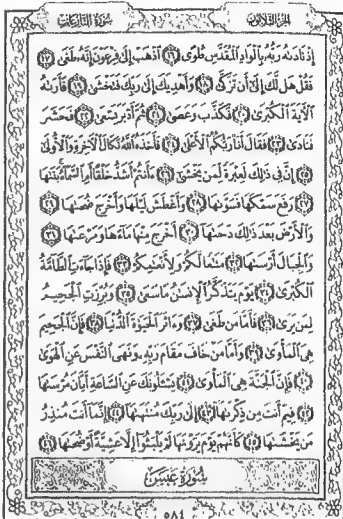 الجزء الثلاثون
سورة النازعات
إِذْ نَادَىٰهُ رَبُّهُۥ بِٱلْوَادِ ٱلْمُقَدَّسِ طُوًى ١٦ ٱذْهَبْ إِلَىٰ فِرْعَوْنَ إِنَّهُۥ طَغَىٰ ١٧
فَقُلْ هَل لَّكَ إِلَىٰٓ أَن تَزَكَّىٰ ١٨ وَأَهْدِيَكَ إِلَىٰ رَبِّكَ فَتَخْشَىٰ ١٩ فَأَرَىٰهُ
ٱلْءَايَةَ ٱلْكُبْرَىٰ ٢٠ فَكَذَّبَ وَعَصَىٰ ٢١ ثُمَّ أَدْبَرَ يَسْعَىٰ ٢٢ فَحَشَرَ
فَنَادَىٰ ٢٣ فَقَالَ أَنَا۠ رَبُّكُمُ ٱلْأَعْلَىٰ ٢٤ فَأَخَذَهُ ٱللَّهُ نَكَالَ ٱلْءَاخِرَةِ وَٱلْأُولَىٰٓ
٢٥ إِنَّ فِى ذَٰلِكَ لَعِبْرَةً لِّمَن يَخْشَىٰٓ ٢٦ ءَأَنتُمْ أَشَدُّ خَلْقًا أَمِ ٱلسَّمَآءُ ۚ بَنَىٰهَا
٢٧ رَفَعَ سَمْكَهَا فَسَوَّىٰهَا ٢٨ وَأَغْطَشَ لَيْلَهَا وَأَخْرَجَ ضُحَىٰهَا ٢٩
وَٱلْأَرْضَ بَعْدَ ذَٰلِكَ دَحَىٰهَآ ٣٠ أَخْرَجَ مِنْهَا مَآءَهَا وَمَرْعَىٰهَا ٣١
وَٱلْجِبَالَ أَرْسَىٰهَا ٣٢ مَتَٰعًا لَّكُمْ وَلِأَنْعَٰمِكُمْ ٣٣ فَإِذَا جَآءَتِ ٱلطَّآمَّةُ
ٱلْكُبْرَىٰ ٣٤ يَوْمَ يَتَذَكَّرُ ٱلْإِنسَٰنُ مَا سَعَىٰ ٣٥ وَبُرِّزَتِ ٱلْجَحِيمُ
لِمَن يَرَىٰ ٣٦ فَأَمَّا مَن طَغَىٰ ٣٧ وَءَاثَرَ ٱلْحَيَوٰةَ ٱلدُّنْيَا ٣٨ فَإِنَّ ٱلْجَحِيمَ
هِىَ ٱلْمَأْوَىٰ ٣٩ وَأَمَّا مَنْ خَافَ مَقَامَ رَبِّهِۦ وَنَهَى ٱلنَّفْسَ عَنِ ٱلْهَوَىٰ
٤٠ فَإِنَّ ٱلْجَنَّةَ هِىَ ٱلْمَأْوَىٰ ٤١ يَسْـَٔلُونَكَ عَنِ ٱلسَّاعَةِ أَيَّانَ مُرْسَىٰهَا
٤٢ فِيمَ أَنتَ مِن ذِكْرَىٰهَآ ٤٣ إِلَىٰ رَبِّكَ مُنتَهَىٰهَآ ٤٤ إِنَّمَآ أَنتَ مُنذِرُ
مَن يَخْشَىٰهَا ٤٥ كَأَنَّهُمْ يَوْمَ يَرَوْنَهَا لَمْ يَلْبَثُوٓا۟ إِلَّا عَشِيَّةً أَوْ ضُحَىٰهَا ٤٦
سُورَةُ عَبَسَ
٥٨٤